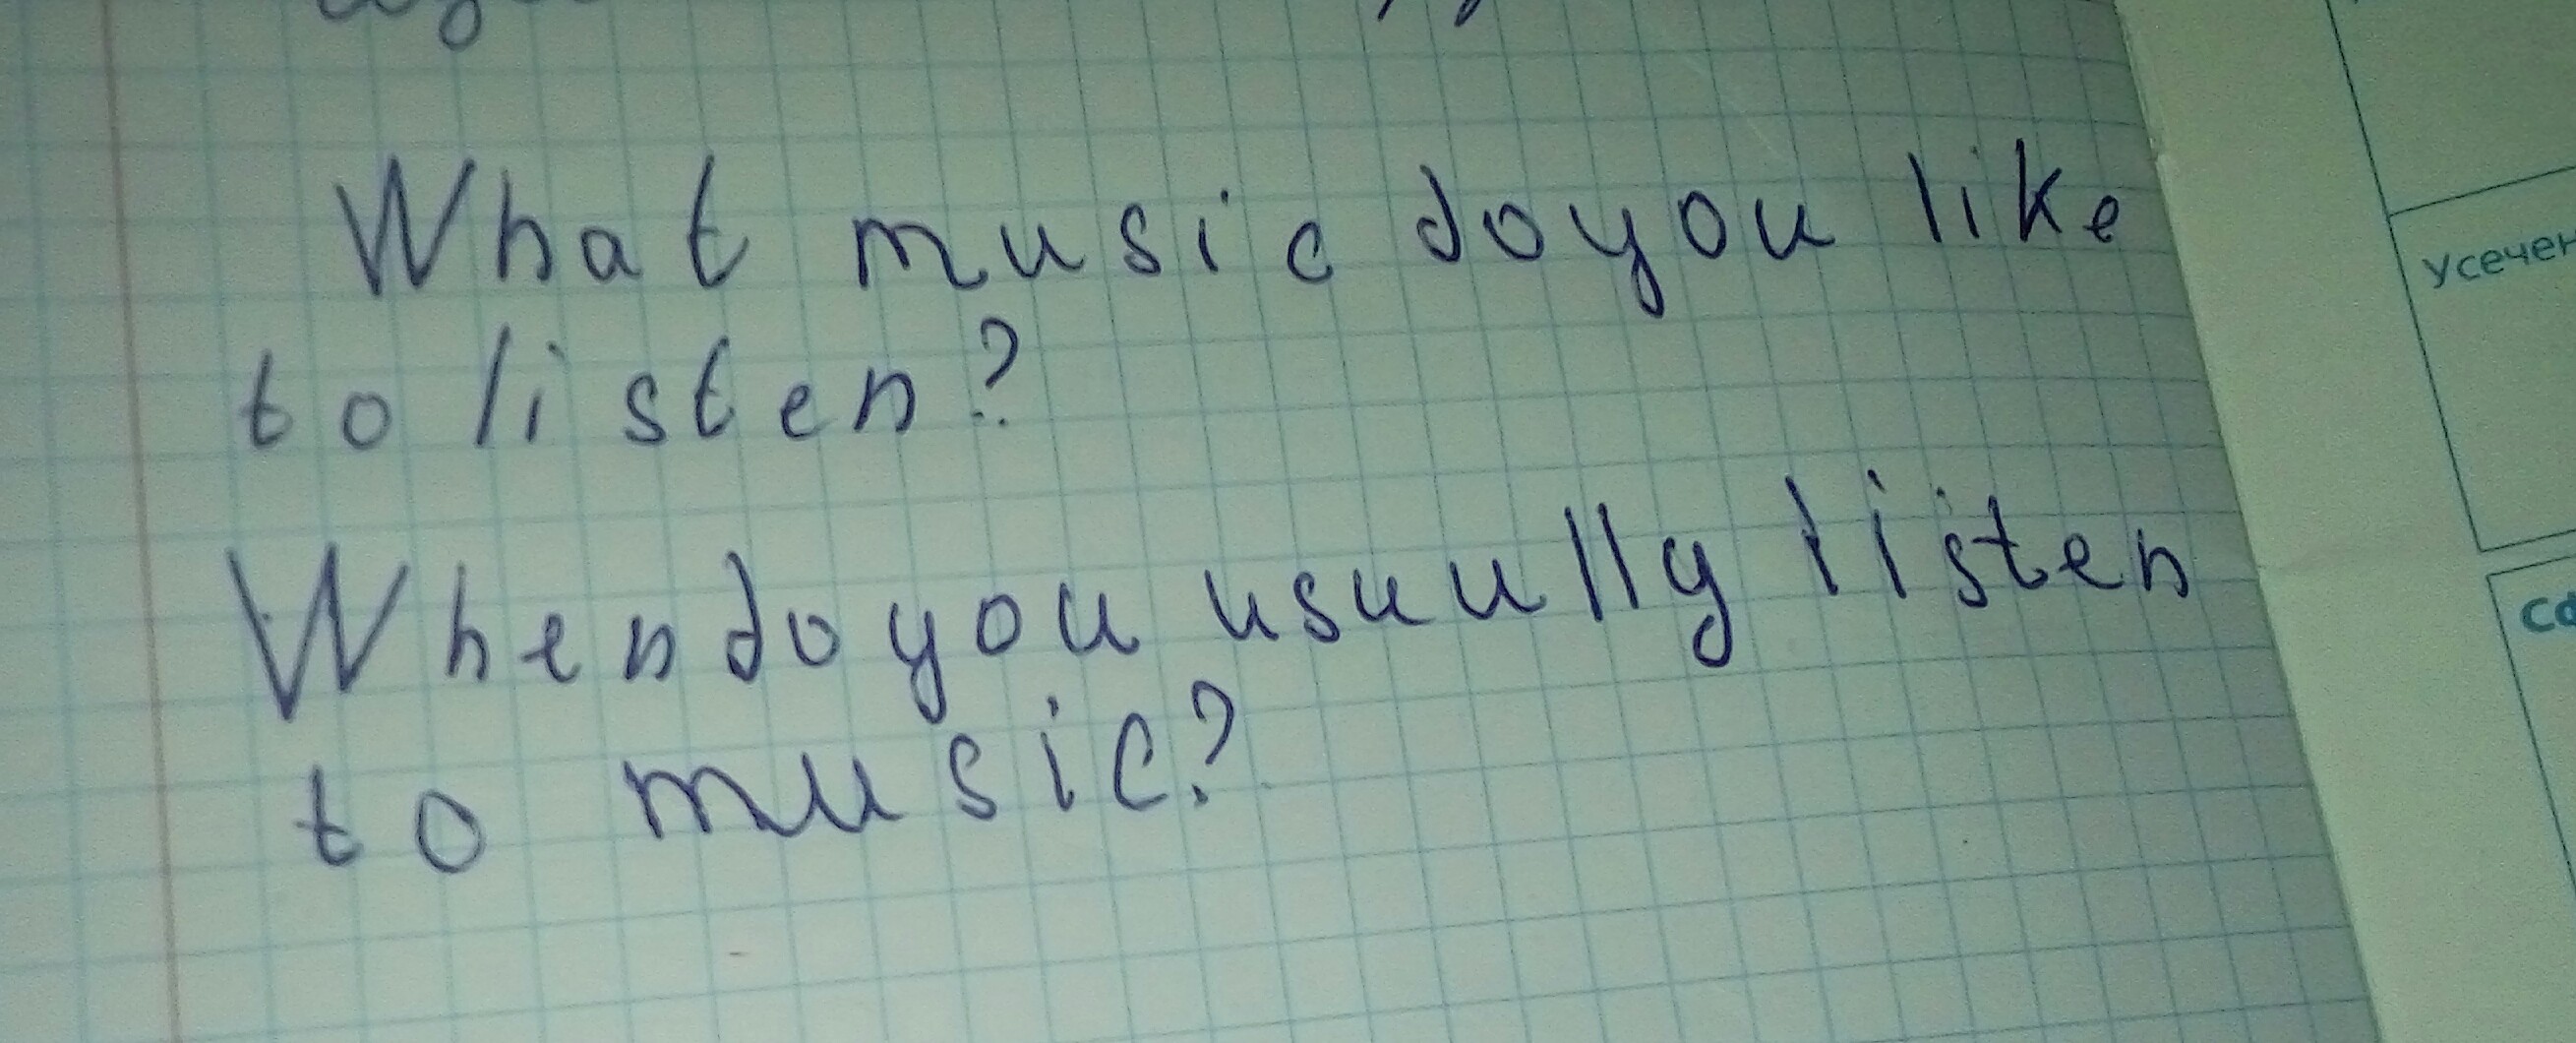 What music do you like
to listen?
When do you usuully listen
to music?